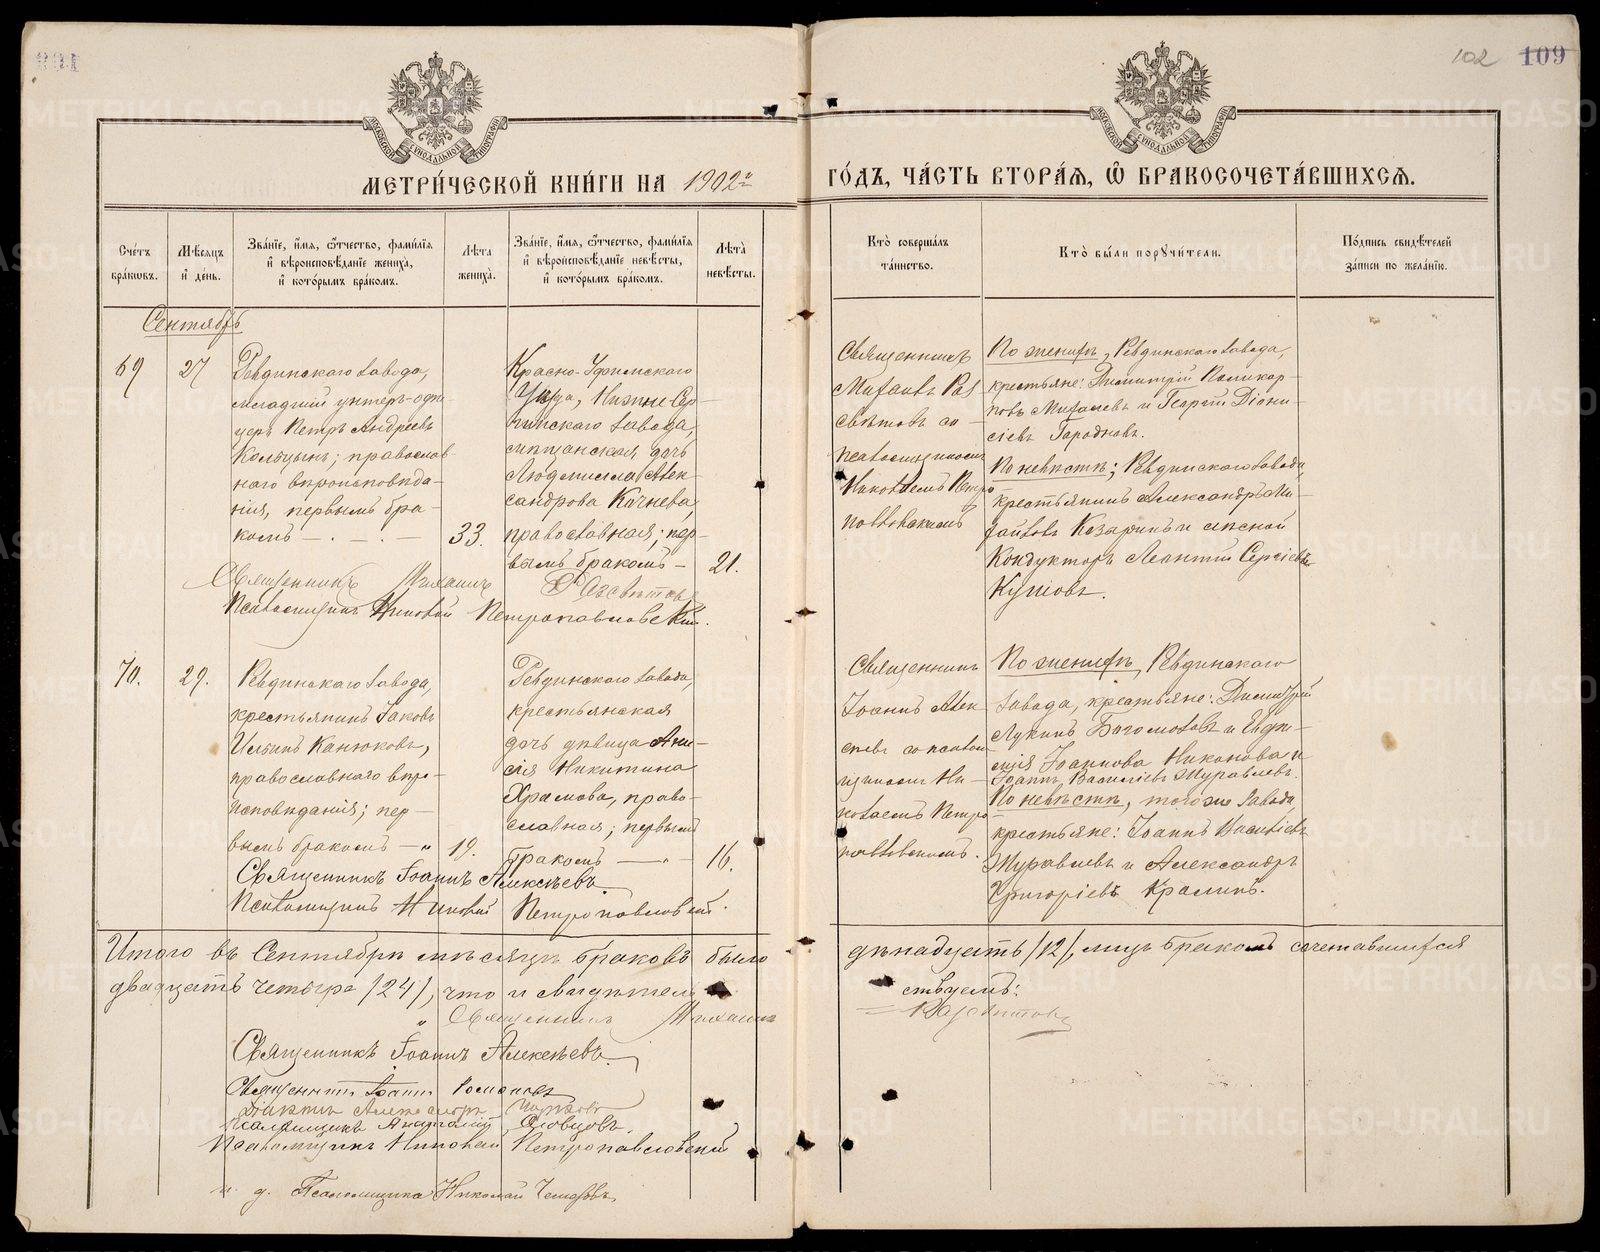 102 109
МЕТРИ́ЧЕСКОЙ КНИ́ГИ НА 1902 й ГО́ДЪ, ЧА́СТЬ ВТОРА́Я, Ѡ БРАКОСОЧЕТА́ВШИХСЯ.
Сче́тъ бра́кѡвъ.
Мѣ́сяцъ и҆ де́нь.
Зва́нїе, и҆́мя, ѻ҆́тчество, фами́лїя и҆ вѣроисповѣ́данїе жениха̀, и҆ кото́рымъ бра́комъ.
Лѣ́та жениха̀.
Зва́нїе, и҆́мя, ѻ҆́тчество, фами́лїя и҆ вѣроисповѣ́данїе невѣ́сты, и҆ кото́рымъ бра́комъ.
Лѣ́та невѣ́сты.
Кто̀ соверша́лъ та́инство.
Кто̀ бы́ли порꙋчи́тели.
По́дпись свидѣ́телей за́писи по жела́нїю.
Сентябрь
69 27
Ревдинскаго завода,
младшій унтеръ-офи-
церъ Петръ Андреевъ
Кольцынъ; православ
наго вѣроисповѣда-
нія, первымъ бра-
комъ — . — . — 33.
Красно-Уфимскаго
Уѣзда, Нижне-Сер-
гинскаго завода,
дочь
Людмилла Алек-
сандрова Качнева,
православная; пер-
вымъ бракомъ — 21.
Священникъ
Михаилъ Раз
свѣтовъ со
псаломщикомъ
Николаемъ Петро-
павловскимъ
По женихѣ, Ревдинскаго завода,
крестьяне: Димитрій Поликар-
повъ Михалевъ и Георгій Діони-
сіевъ Городновъ.
По невѣстѣ; Ревдинскаго завода,
крестьянинъ Александръ Ми-
хайловъ Козыринъ и лѣсной
Кондукторъ Леонтій Сергіевъ
Священникъ Михаилъ Разсвѣтовъ
Псаломщикъ Николай Петропавловскій.
70. 29.
Ревдинскаго завода,
крестьянинъ Іаковъ
Ильинъ Канюковъ,
православнаго вѣро-
исповѣданія; пер-
вымъ бракомъ — " 19.
Ревдинскаго завода,
крестьянская
дочь дѣвица Ани-
сія Никитина
Храмова, право-
славная; первымъ
бракомъ — " — 16.
Священникъ
Іоаннъ Алек-
сѣевъ съ псалом-
щикомъ Ни-
колаемъ Петро-
павловскимъ.
По женихѣ, Ревдинскаго
завода, крестьяне: Димитрій
Лукинъ Богомоловъ и Евдо-
кія Іоаннова Никонова и
Іоаннъ Василіевъ Журавлевъ.
По невѣстѣ, того же завода,
крестьяне: Іоаннъ Василіевъ
Журавлевъ и Александръ
Григоріевъ Краминъ.
Священникъ Іоаннъ Алексѣевъ.
Псаломщикъ Николай Петропавловскій.
Итого въ Сентябрѣ мѣсяцѣ браковъ было двѣнадцать /12/, лицъ бракомъ сочетавшихся
двадцать четыре /24/, что и свидѣтельствуемъ:
" Священникъ Михаилъ Разсвѣтовъ
Священникъ Іоаннъ Алексѣевъ.
Священникъ Іоаннъ
Діаконъ Александръ
Псаломщикъ Анатолій Словцовъ.
Псаломщикъ Николай Петропавловскій
и. д. Псаломщика Николай
METRIKI.GASO-URAL.RU